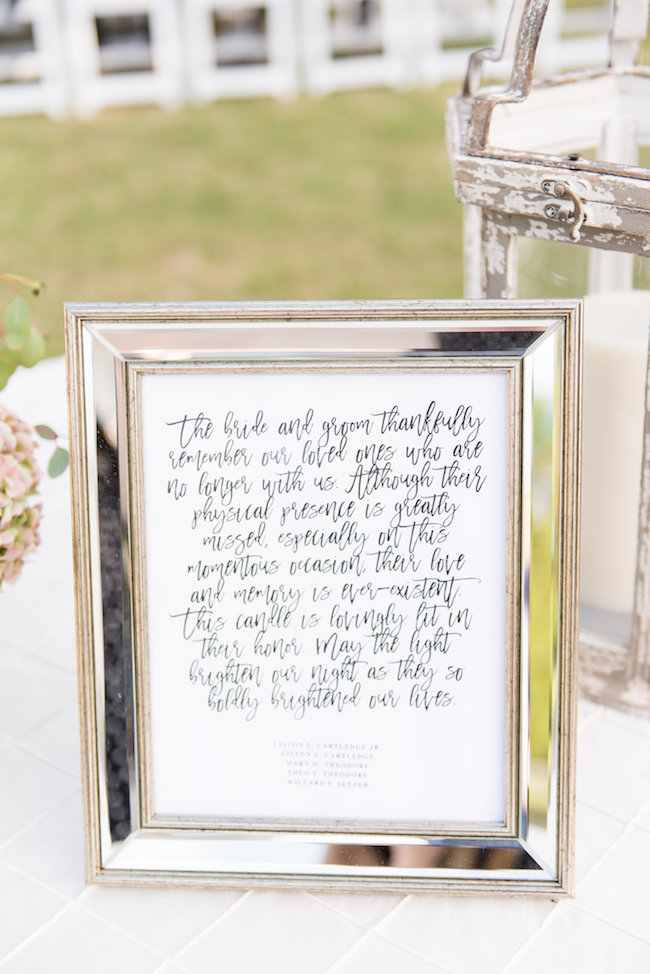 The bride and groom thankfully
remember our loved ones who are
no longer with us. Although their
physical presence is greatly
missed, especially on this
momentous occasion, their love
and memory is ever-existent.
This candle is lovingly lit in
their honor. May the light
brighten our night as they so
boldly brightened our lives.
LISTON E. CARTLEDGE JR.
LISTON E. CARTLEDGE
MARY M. THEODORE
THEO T. THEODORE
WILLARD F. SETZER